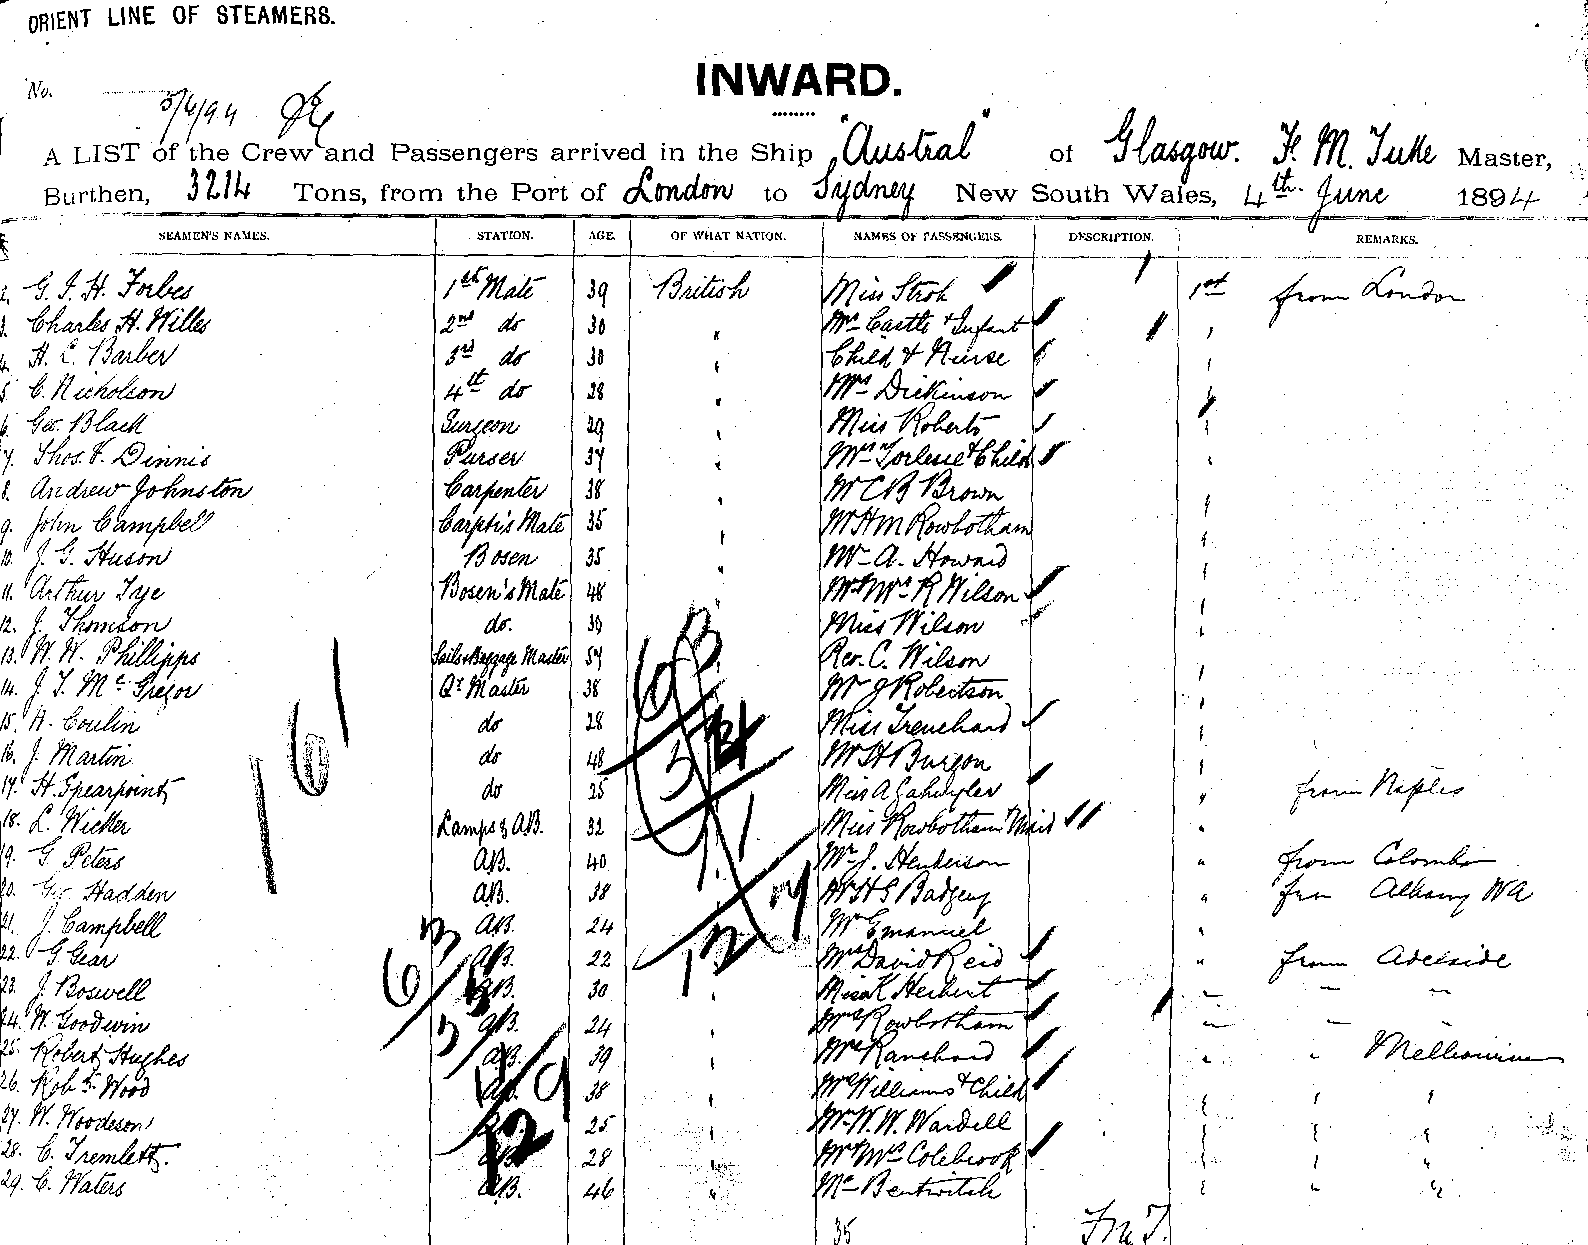 ORIENT LINE OF STEAMERS.
INWARD.
No.
5/6/94
A LIST of the Crew and Passengers arrived in the Ship "Austral" of Glasgow. F. M. Tuke Master,
Burthen, 3214 Tons, from the Port of London to Sydney New South Wales, 4th June 1894
SEAMEN'S NAMES. STATION. AGE. OF WHAT NATION. NAMES OF PASSENGERS. DESCRIPTION. REMARKS.
2. G. I. H. Forbes 1st Mate 39 British Miss Stroh 1st from London
3. Charles H. Willes 2nd do 30 " Mrs Castle & Infant "
4. H. L. Barber 3rd do 30 " Child & Nurse "
5. C. Nicholson 4th do 28 " Mrs Dickinson "
6. Geo. Black Surgeon 29 " Miss Roberts "
7. Thos. F. Dinnis Purser 37 " Mrs Torlesse & Child "
8. Andrew Johnston Carpenter 38 " Mr C B Brown
9. John Campbell Carptr's Mate 35 " Mr H M Rowbotham "
10. J. G. Huson Bosen 35 " Mr A. Howard "
11. Arthur Tye Bosen's Mate 48 " Mr & Mrs R Wilson "
12. J. Thomson do. 39 Miss Wilson "
13. W. W. Phillipps Sails & Baggage Master 57 Rev. C. Wilson
14. J. T. McGregor Qr Master 38 Mr J Robertson "
15. H. Coulin do 28 Miss Trenchard "
16. J. Martin do 48 Mr H Burgon "
17. H. Spearpoint do 25 Miss A " from Naples
18. L. Wicker Lamps & AB. 32 Miss Rowbotham & Maid "
19. G. Peters AB. 40 Mr J. Henderson " from Colombo
20. Geo Hadden AB. 38 Mr H S Badgery " from Albany WA
21. J. Campbell AB. 24 Mr Emanuel "
22. G Gear AB. 22 Mrs David Reid " from Adelaide
23. J. Boswell AB. 30 " Miss K Herbert " " "
24. W. Goodwin AB. 24 " Mrs Rowbotham " " "
25. Robert Hughes AB. 39 " Mrs Ranchard " " Melbourne
26. Robt Wood AB. 38 " Mrs Williams & Child " " "
27. W. Woodeson 25 " Mr W. W. Wardell " " "
28. C. Tremlett. AB. 28 " Mr & Mrs Colebrook " " "
29. C. Waters AB. 46 " Mr Bentwitch " " "
35 F.M.T.
161